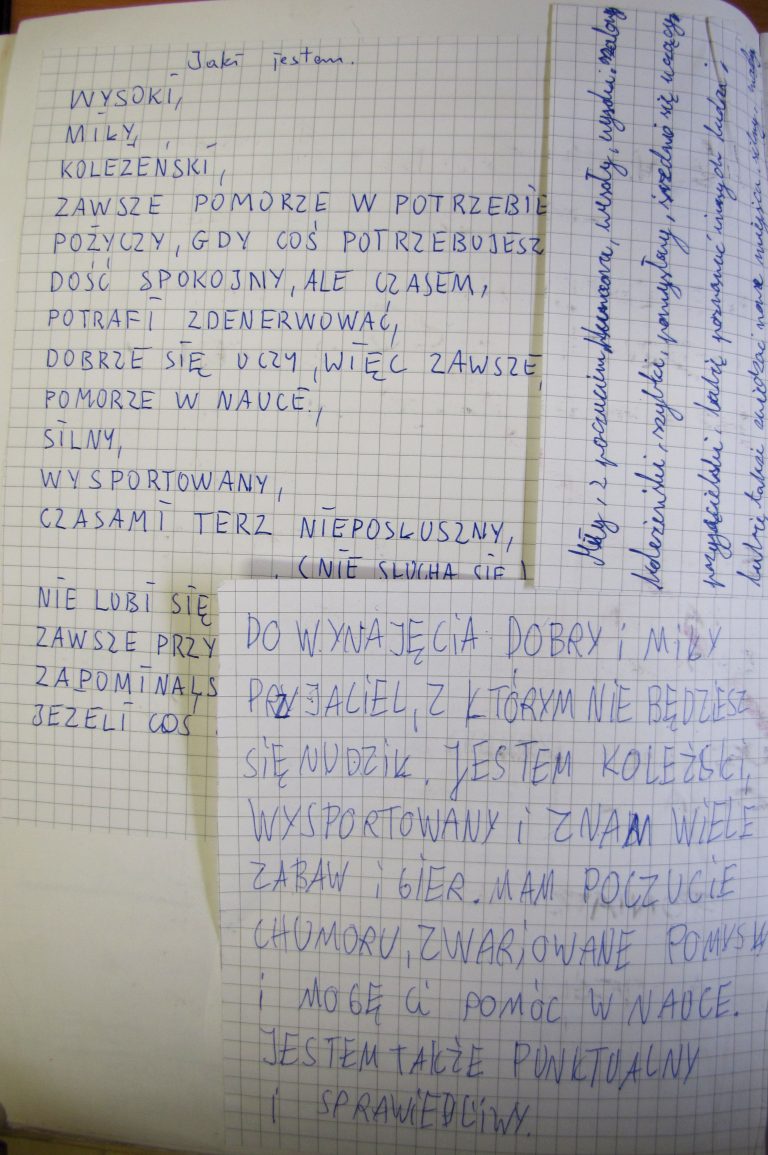 Jaki jestem.
WYSOKI,
MIŁY,
KOLEŻEŃSKI,
ZAWSZE POMORZE W POTRZEBIE
POŻYCZY, GDY COŚ POTRZEBUJESZ
DOŚĆ SPOKOJNY, ALE CZASEM,
POTRAFI ZDENERWOWAĆ,
DOBRZE SIĘ UCZY, WIĘC ZAWSZE,
POMORZE W NAUCE,
SILNY,
WYSPORTOWANY,
CZASAMI TERZ NIEPOSŁUSZNY,
(NIE SŁUCHA SIĘ)
NIE LUBI SIĘ
ZAWSZE PRZY
ZAPOMINALS
JEŻELI COŚ
Miły, z poczuciem humoru, wesoły, wysoki,
koleżeński, szybki, pomysłowy, średnio się uczący,
przyjacielski, lubię poznawać innych ludzi,
lubię także zwiedzać nowe miejsca, silny,
DO WYNAJĘCIA DOBRY i MIŁY
PRZYJACIEL, Z KTÓRYM NIE BĘDZIESZ
SIĘ NUDZIŁ. JESTEM KOLEŻSKI,
WYSPORTOWANY i ZNAM WIELE
ZABAW i GIER. MAM POCZUCIE
CHUMORU, ZWARJOWANE POMYSŁ
i MOGĘ Ci POMÓC W NAUCE.
JESTEM TAKŻE PUNKTUALNY
i SPRAWIEDLiWY.